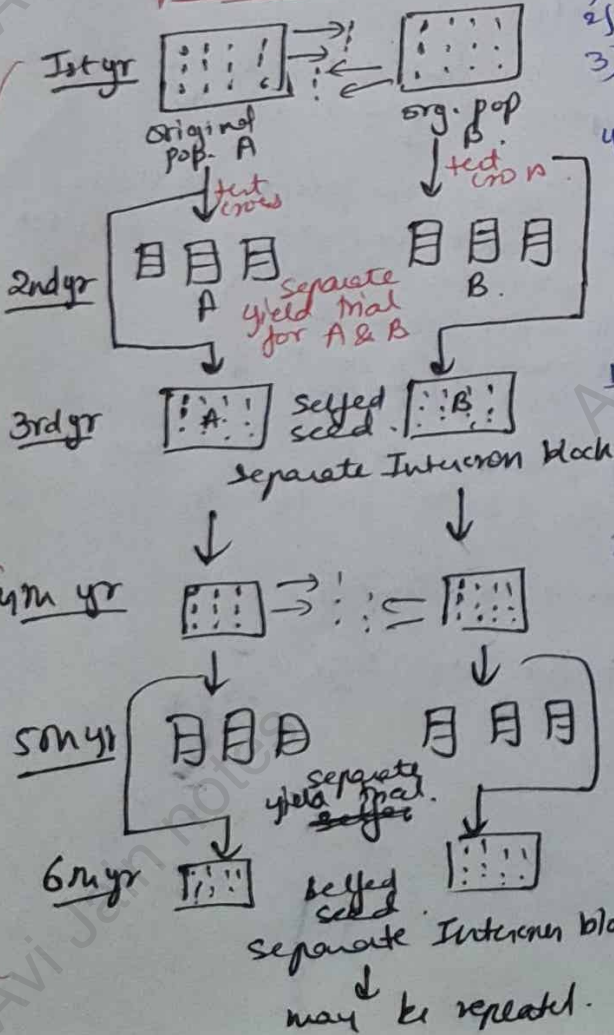 2)
3)
Ist yr
original
pop. A
org. pop
B.
test
cross
test
cross
2nd yr
A
B.
separate
yield trial
for A & B
3rd yr
A
selfed
seed.
B
separate Intercross block
4th yr
5th yr
separate
yield trial.
6th yr
selfed
seed.
separate Intercross blo
may be repeated.
Avi Jain notes